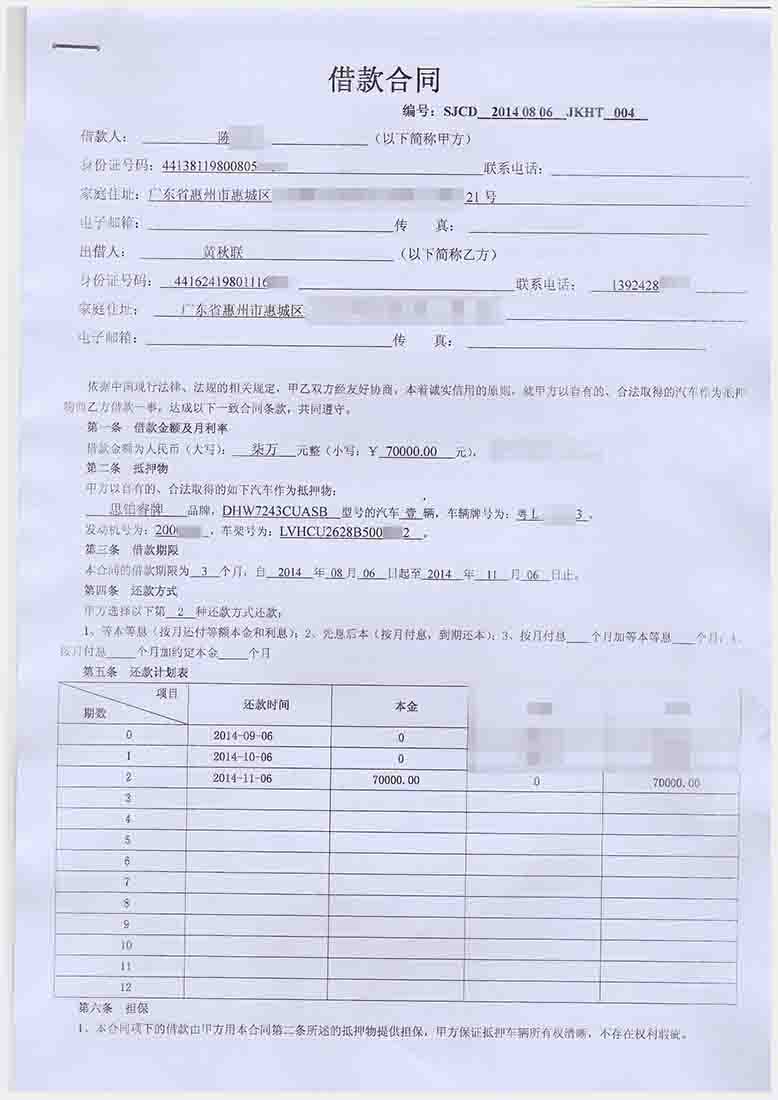 借款合同
编号：SJCD 2014 08 06 JKHT 004
借款人： 陈 （以下简称甲方）
身份证号码：44138119800805 联系电话：
家庭住址：广东省惠州市惠城区 21 号
电子邮箱： 传 真：
出借人： 黄秋联 （以下简称乙方）
身份证号码： 44162419801116 联系电话： 1392428
家庭住址： 广东省惠州市惠城区
电子邮箱： 传 真：
依据中国现行法律、法规的相关规定，甲乙双方经友好协商，本着诚实信用的原则，就甲方以自有的、合法取得的汽车作为抵押
物向乙方借款一事，达成以下一致合同条款，共同遵守。
第一条 借款金额及月利率
借款金额为人民币（大写）： 柒万 元整（小写：￥ 70000.00 元），
第二条 抵押物
甲方以自有的、合法取得的如下汽车作为抵押物：
思铂睿牌 品牌，DHW7243CUASB 型号的汽车 壹 辆，车辆牌号为：粤 L 3 ，
发动机号为：200 ，车架号为：LVHCU2628B500 2 。
第三条 借款期限
本合同的借款期限为 3 个月，自 2014 年 08 月 06 日起至 2014 年 11 月 06 日止。
第四条 还款方式
甲方选择以下第 2 种还款方式还款：
1、等本等息（按月还付等额本金和利息）；2、先息后本（按月付息，到期还本）；3、按月付息 个月加等本等息 个月；4、
按月付息 个月加约定本金 个月
第五条 还款计划表
项目
期数 还款时间 本金
0 2014-09-06 0
1 2014-10-06 0
2 2014-11-06 70000.00 0 70000.00
3
4
5
6
7
8
9
10
11
12
第六条 担保
1、本合同项下的借款由甲方用本合同第二条所述的抵押物提供担保，甲方保证抵押车辆所有权清晰，不存在权利瑕疵。